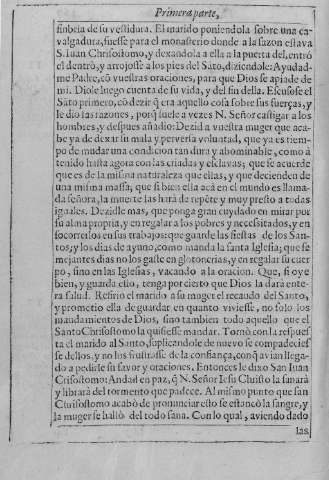 Primera parte,
fimbria de su vestidura. El marido poniendola sobre una ca-
valgadura, fuesse para el monasterio donde a la sazon estava
S. Iuan Chrisostomo, y dexandola a ella a la puerta del, entrò
el dentro, y arrojosse a los pies del Sãto, diziendole: Ayudad-
me Padre, cõ vuestras oraciones, para que Dios se apiade de
mi. Diole luego cuenta de su vida, y del fin della. Escusose el
Sãto primero, cõ dezir q̃ era aquello cosa sobre sus fuerças, y
le dio las razones, porq̃ suele a vezes N. Señor castigar a los
hombres, y despues añadio: Dezid a vuestra muger que aca-
be ya de dexar su mala y perversa voluntad, que ya es tiem-
po de mudar una condicion tan dura y abominable, como à
tenido hasta agora con las criadas y esclavas; que se acuerde
que es de la misma naturaleza que ellas, y que decienden de
una misma massa, que si bien ella acà en el mundo es llama-
da señora, la muerte las harà de repẽte y muy presto a todas
iguales. Dezidle mas, que ponga gran cuydado en mirar por
su alma propria, y en regalar a los pobres y necessitados, y en
socorrerlos en sus trabajos: que guarde las fiestas de los San-
tos, y los dias de ayuno, como manda la santa Iglesia; que se-
mejantes dias no los gaste en glotonerias, y en regalar su cuer
po, sino en las Iglesias, vacando a la oracion. Que, si oye
bien, y guarda esto, tenga por cierto que Dios la darà ente-
ra salud. Refirio el marido a su muger el recaudo del Santo,
y prometio ella de guardar en quanto viviesse, no solo los
mandamientos de Dios, sino tambien todo aquello que el
Santo Chrisostomo la quisiesse mandar. Tornò con la respues
ta el marido al Santo, suplicandole de nuevo se compadecies
se dellos, y no los frustrasse de la confiança, conq̃ avian llega-
do a pedirle su favor y oraciones. Entonces le dixo San Iuan
Crisostomo: Andad en paz, q̃ N. Señor Iesu Christo la sanarà
y librarà del tormento que padece. Al mismo punto que san
Chrisostomo acabò de pronunciar esto se estancò la sangre, y
la muger se hallò del todo sana. Con lo qual, aviendo dado
las